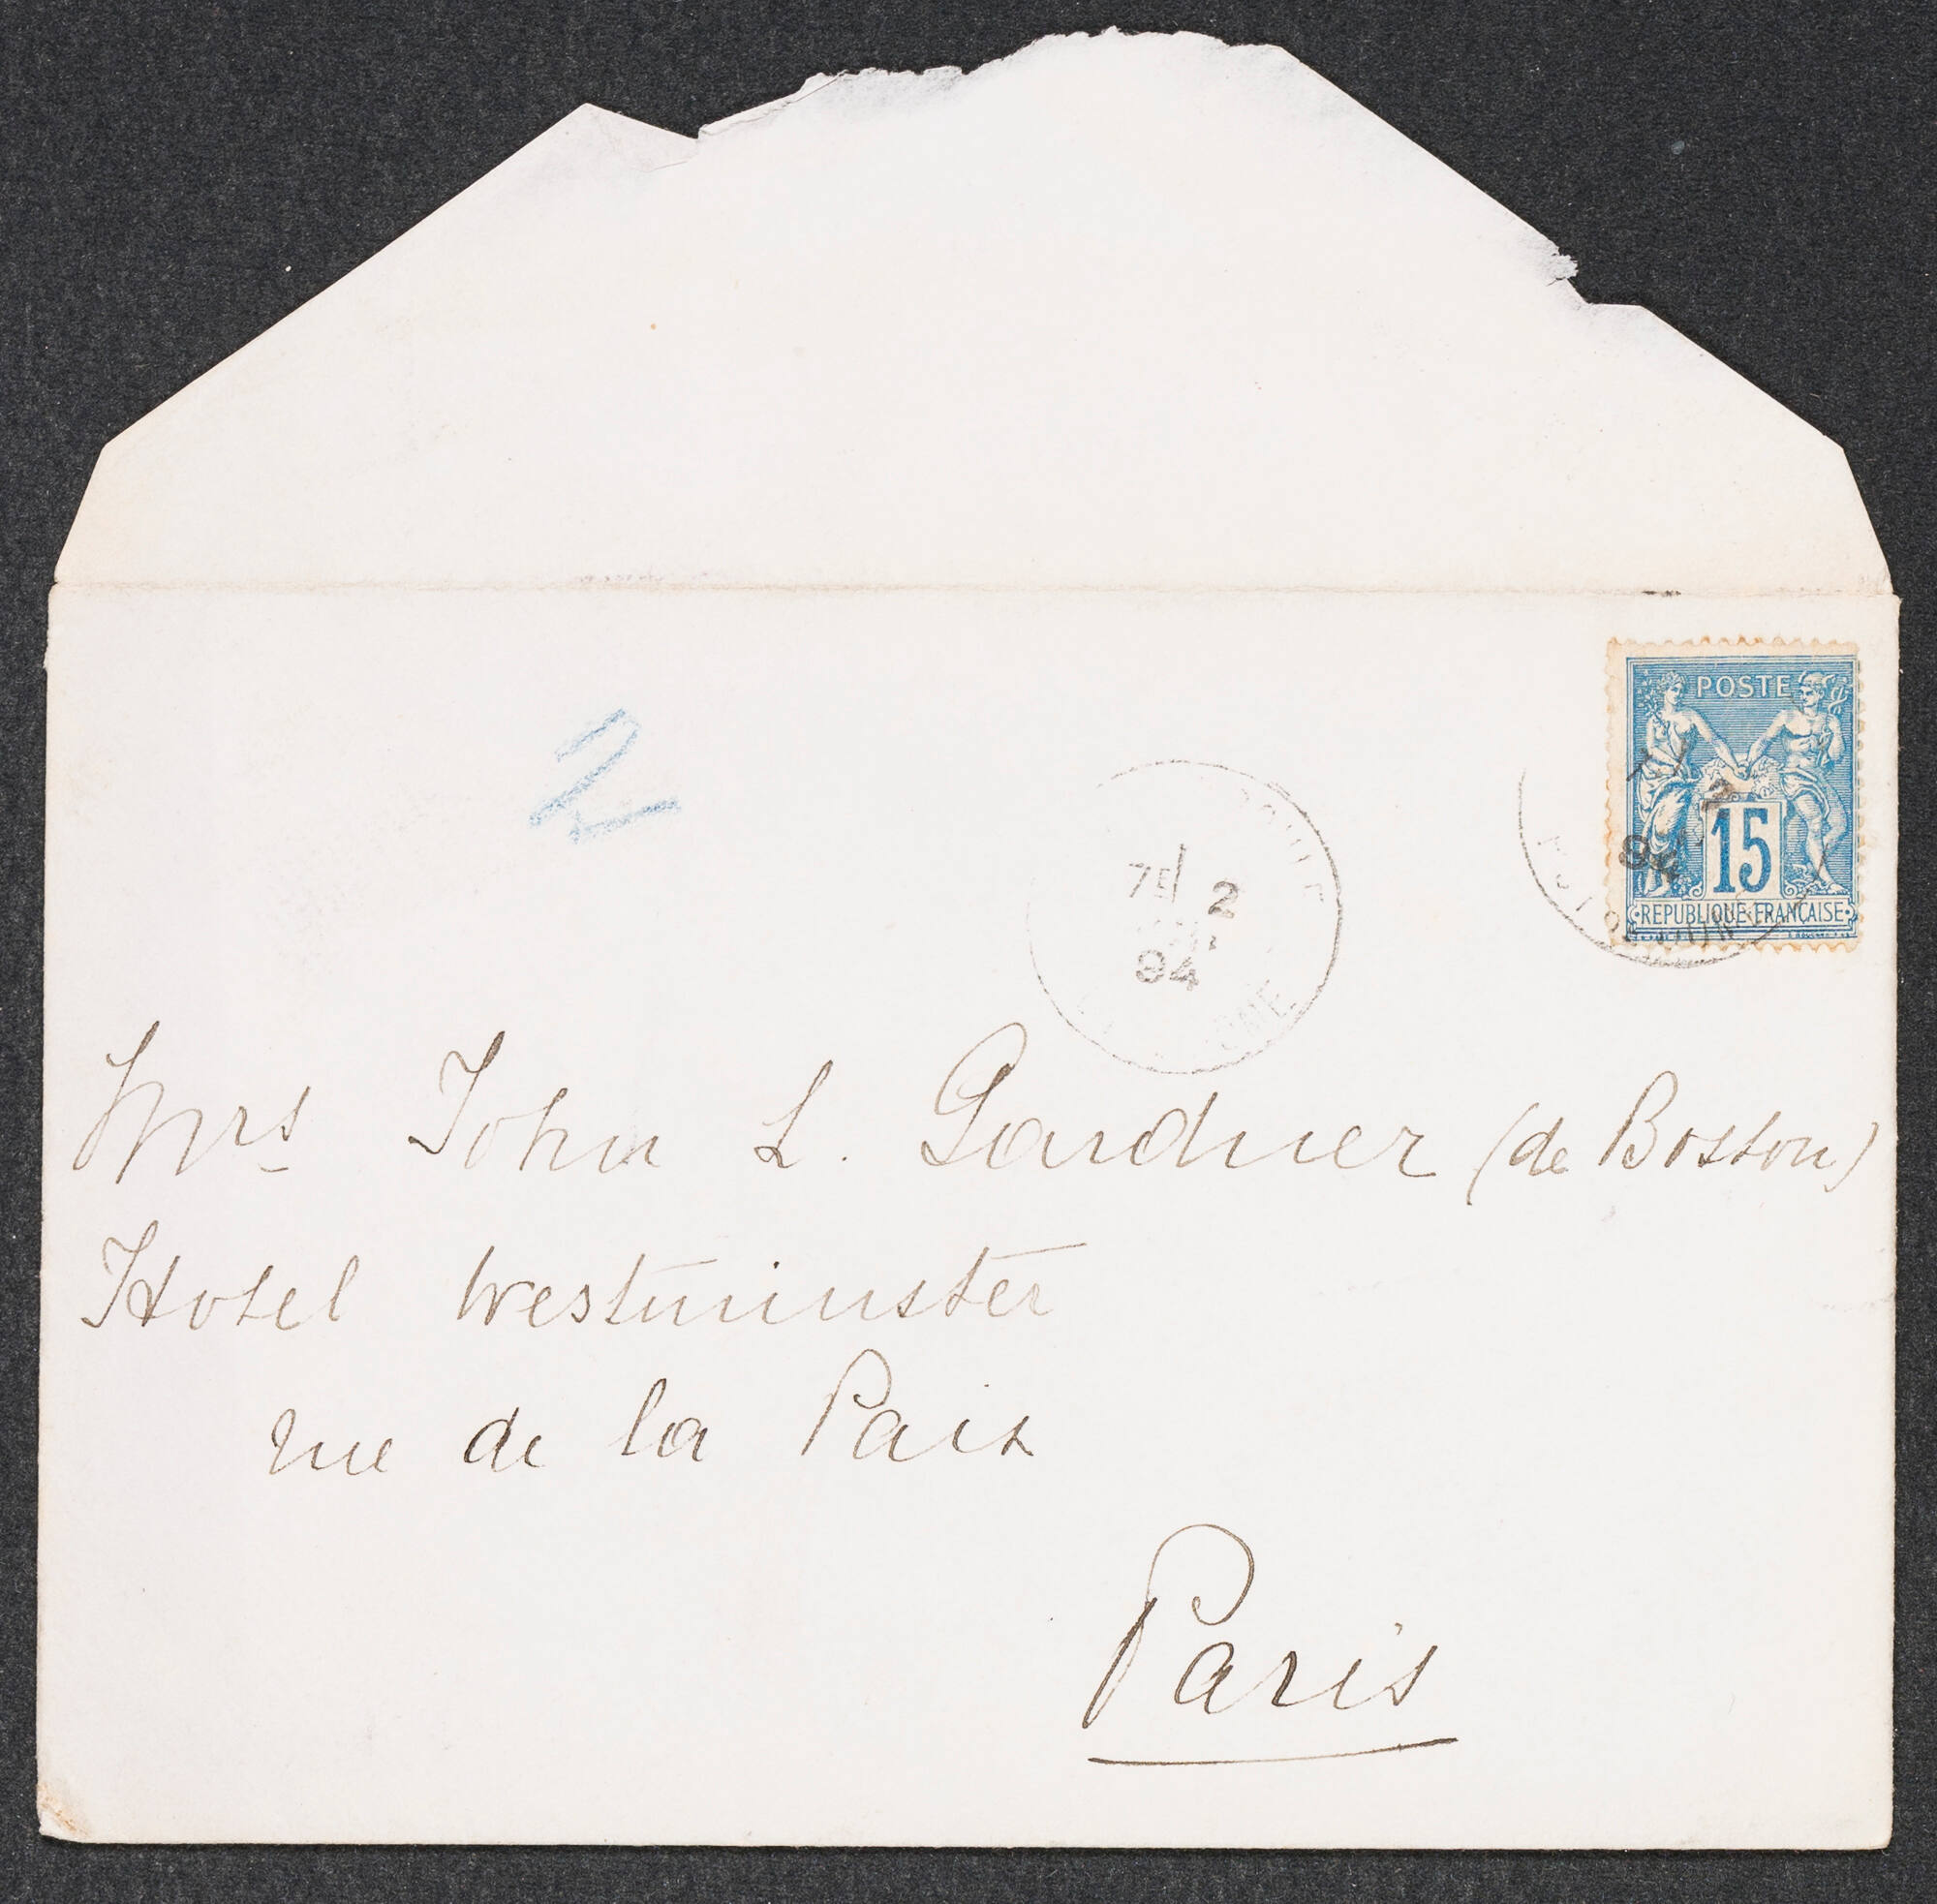 POSTE
15
REPUBLIQUE FRANÇAISE
94
2
7E 2
94
Mrs John L. Gardner (de Boston)
Hotel Westminster
rue de la Paix
Paris